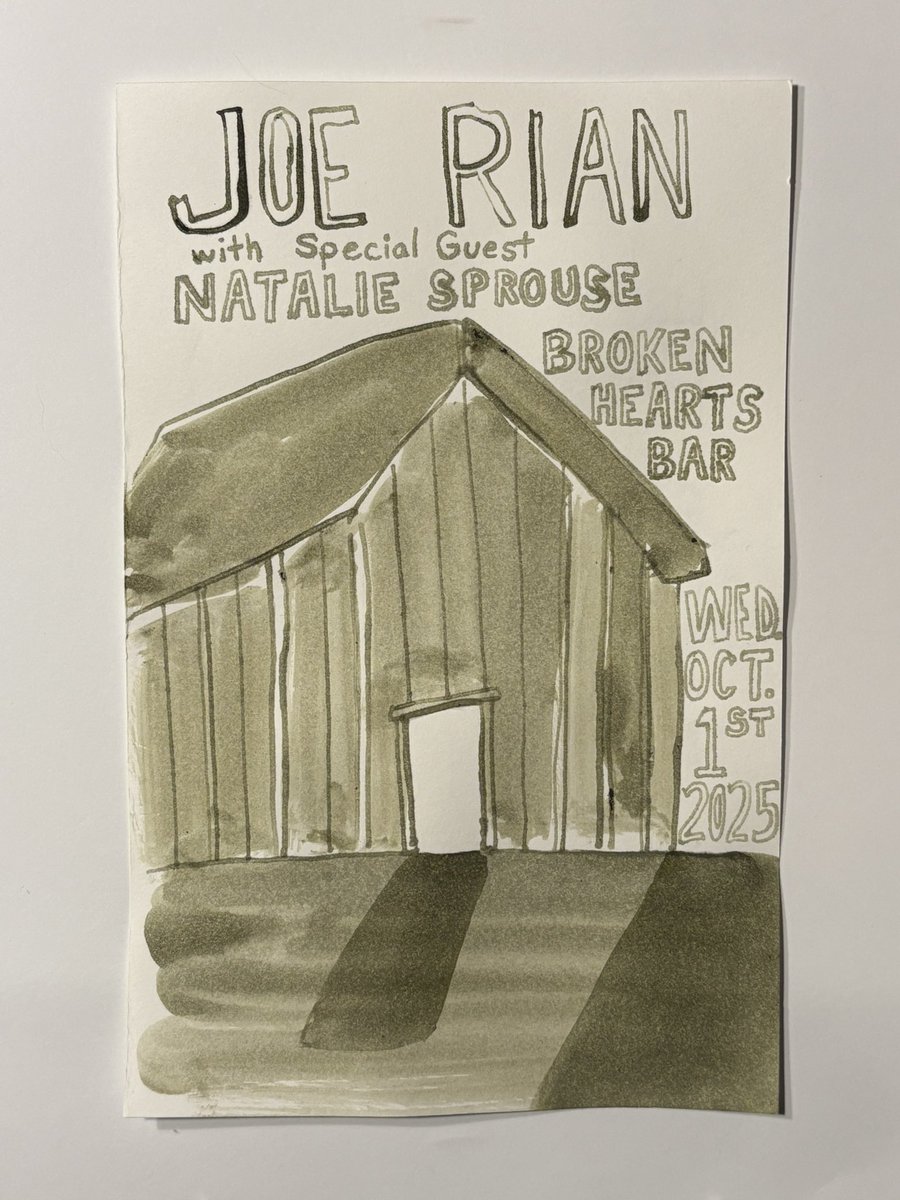 JOE RIAN
with Special Guest
NATALIE SPROUSE
BROKEN
HEARTS
BAR
WED.
OCT.
1ST
2025